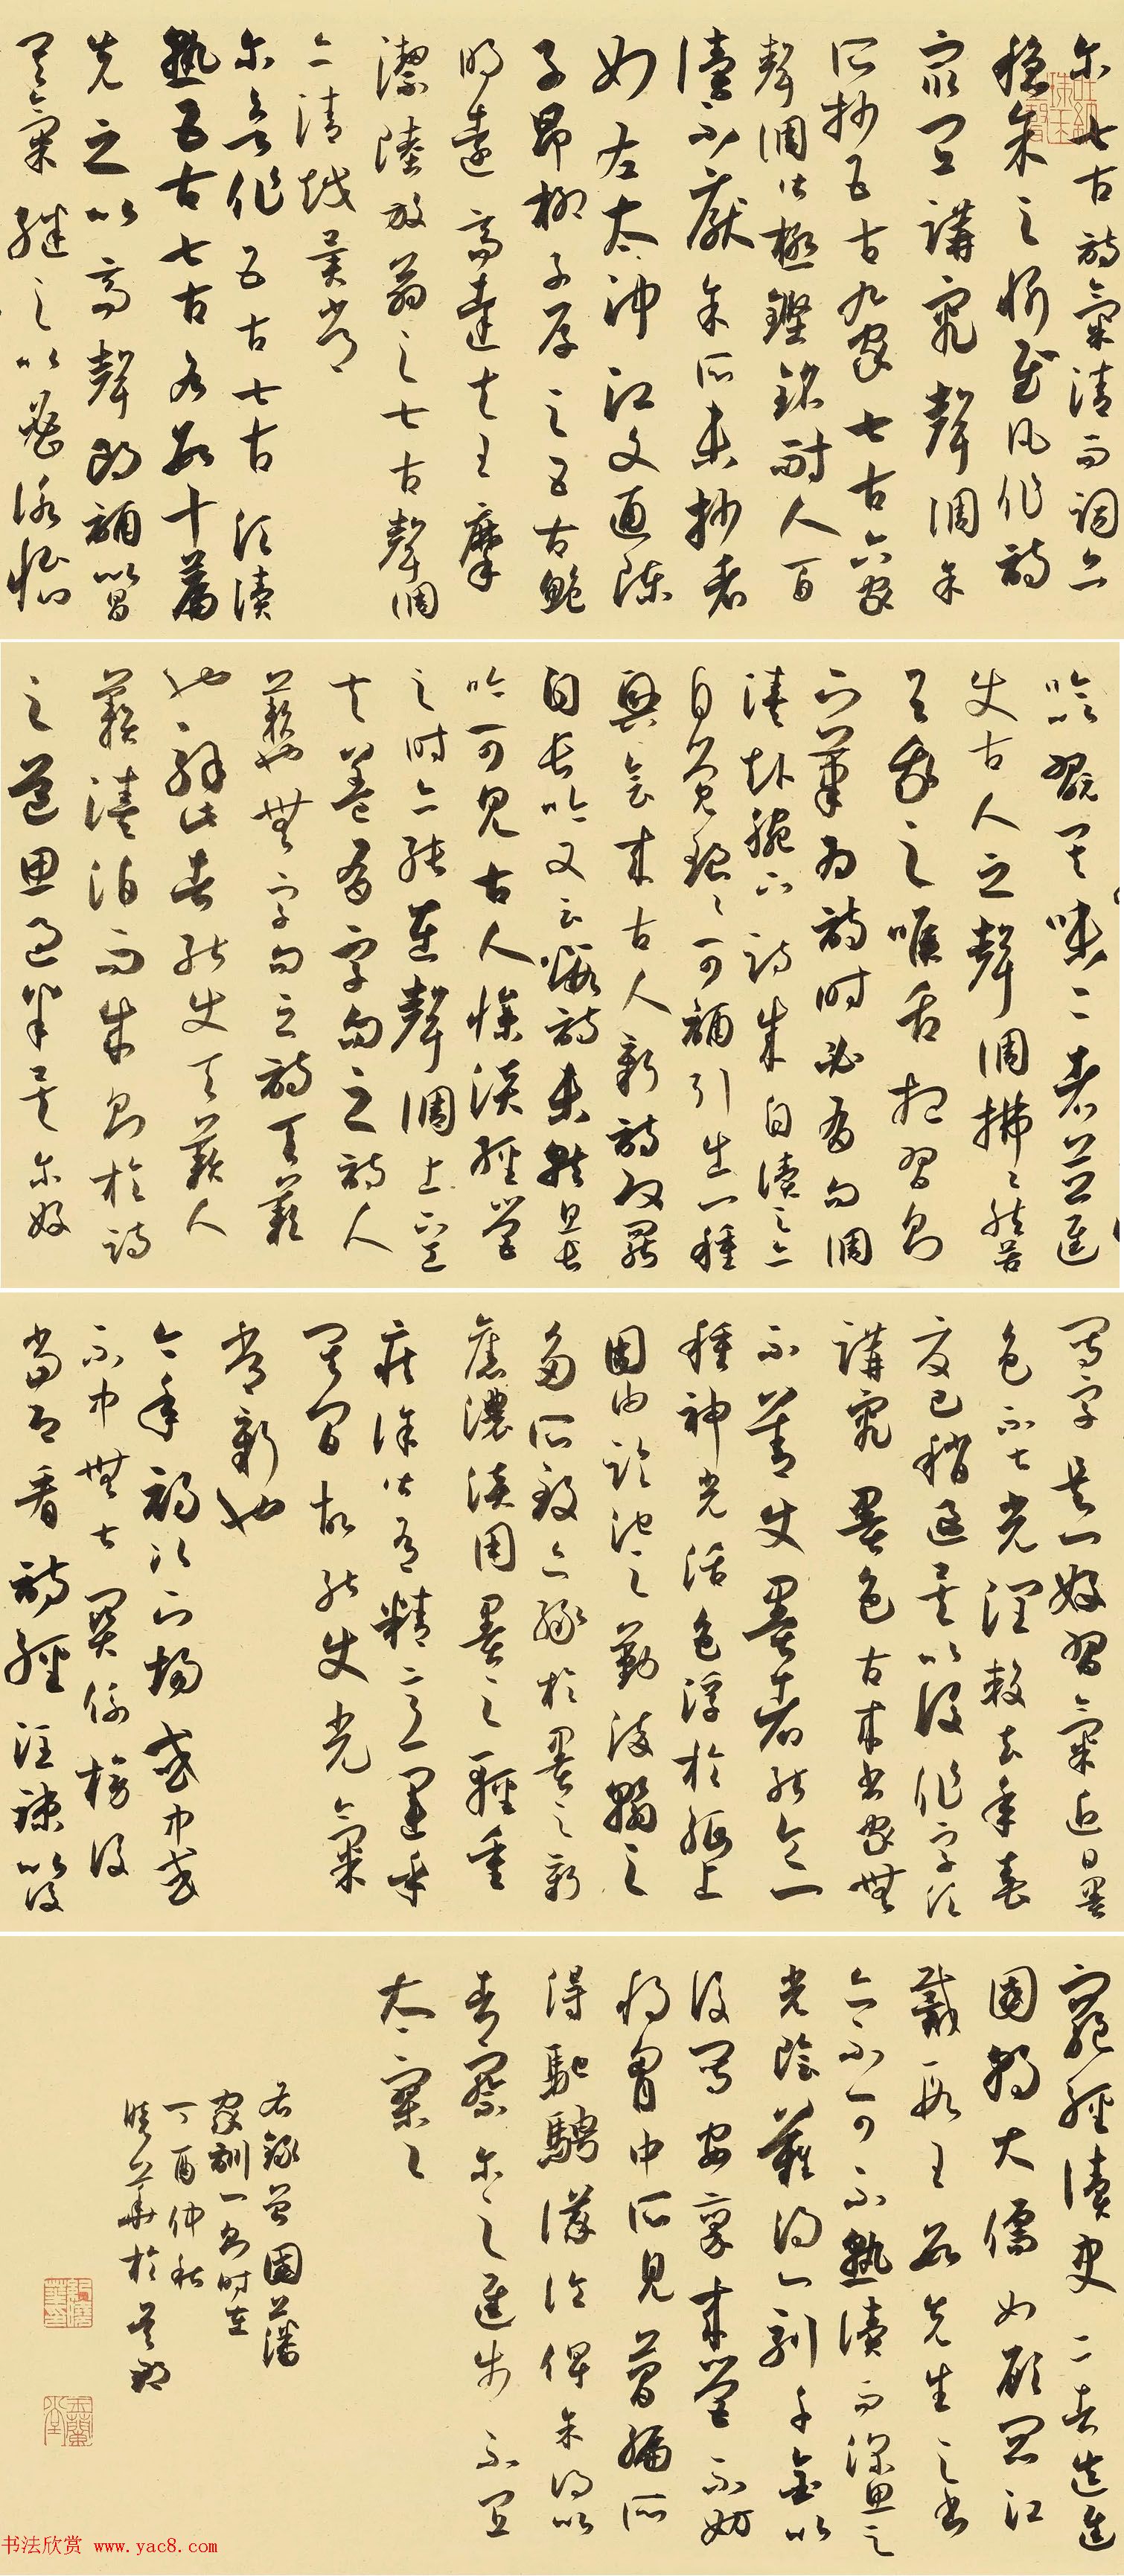 尔七古詩氣清而詞亦
穩余之忻慰凡作詩
最宜講究聲調余
所抄五古九家七古六家
聲調皆極鏗鏘耐人百
讀不厭余所未抄者
如左太沖江文通陳
子昂柳子厚之五古鮑
明遠高達夫王摩
潔陸放翁之七古聲調
亦清越異常
尔欲作五古七古須讀
熟五古七古各數十篇
先之以高聲朗誦以昌
其氣繼之以密詠恬
吟翫其味二者並進
使古人之聲調拂拂然若
與我之喉舌相習則
下筆為詩時必有句調
湊赴腕下詩成自讀之亦
自覺琅琅可誦引出一種
興會來古人新詩改罷
自長吟又云煅詩未就且長
吟可見古人慘淡經營
之時亦純在聲調上下工
夫蓋有字句之詩人
籟也無字句之詩天籟
也解此者能使天籟人
籟湊泊而成則於詩
之道思過半矣尔好
寫字是一好習氣近日墨
色不甚光潤較去年春
夏已稍退矣以後作字須
講究墨色古來書家無
不善使墨者能令一
種神光活色浮於紙上
固由臨池之勤染翰之
多所致亦緣於墨之新
舊濃淡用墨之輕重
疾徐皆有精意運乎
其間故能使光氣
常新也
今年初次下場或中或
不中無甚關係榜後
當即看詩經注疏以後
窮經讀史二者迭進
國朝大儒如顧閻江
戴段王數先生之書
亦不可不熟讀而深思之
光陰難得一刻千金以
後寫安稟來營不妨
將胸中所見簡編所
得馳騁議論俾余得以
考察尔之進步不宜
太寥寥
右錄曾國藩
家訓一則時在
丁酉仲秋
華於
书法欣赏 www.yac8.com